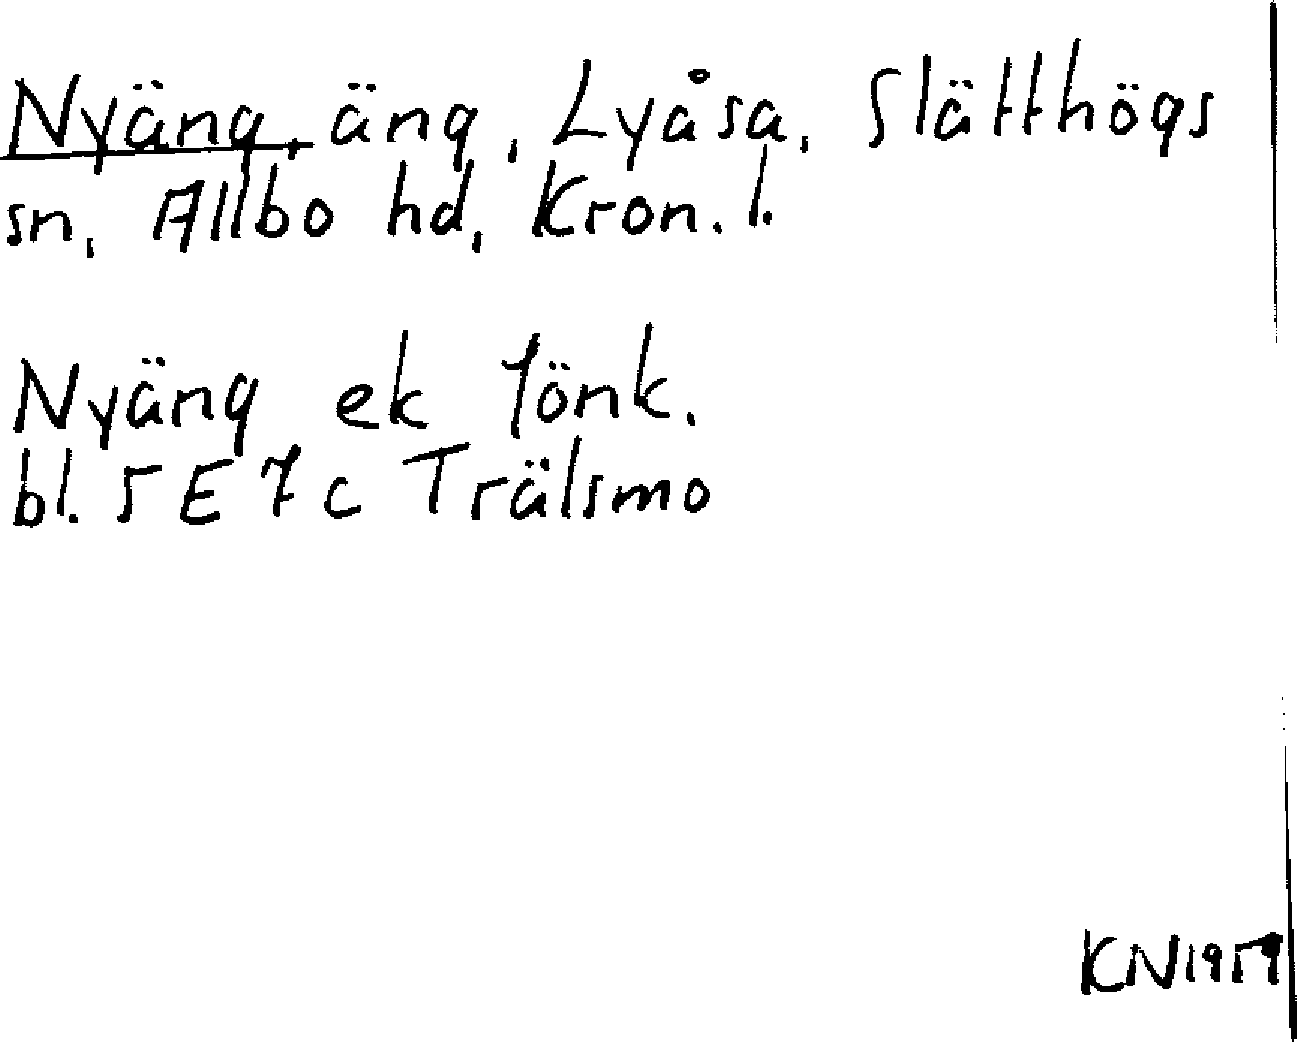 Nyäng, äng, Lyåsa, Slätthögs
sn, Allbo hd, Kron. l.
Nyäng ek Jönk.
bl. 5 E 7 c Trälsmo
KN 1959